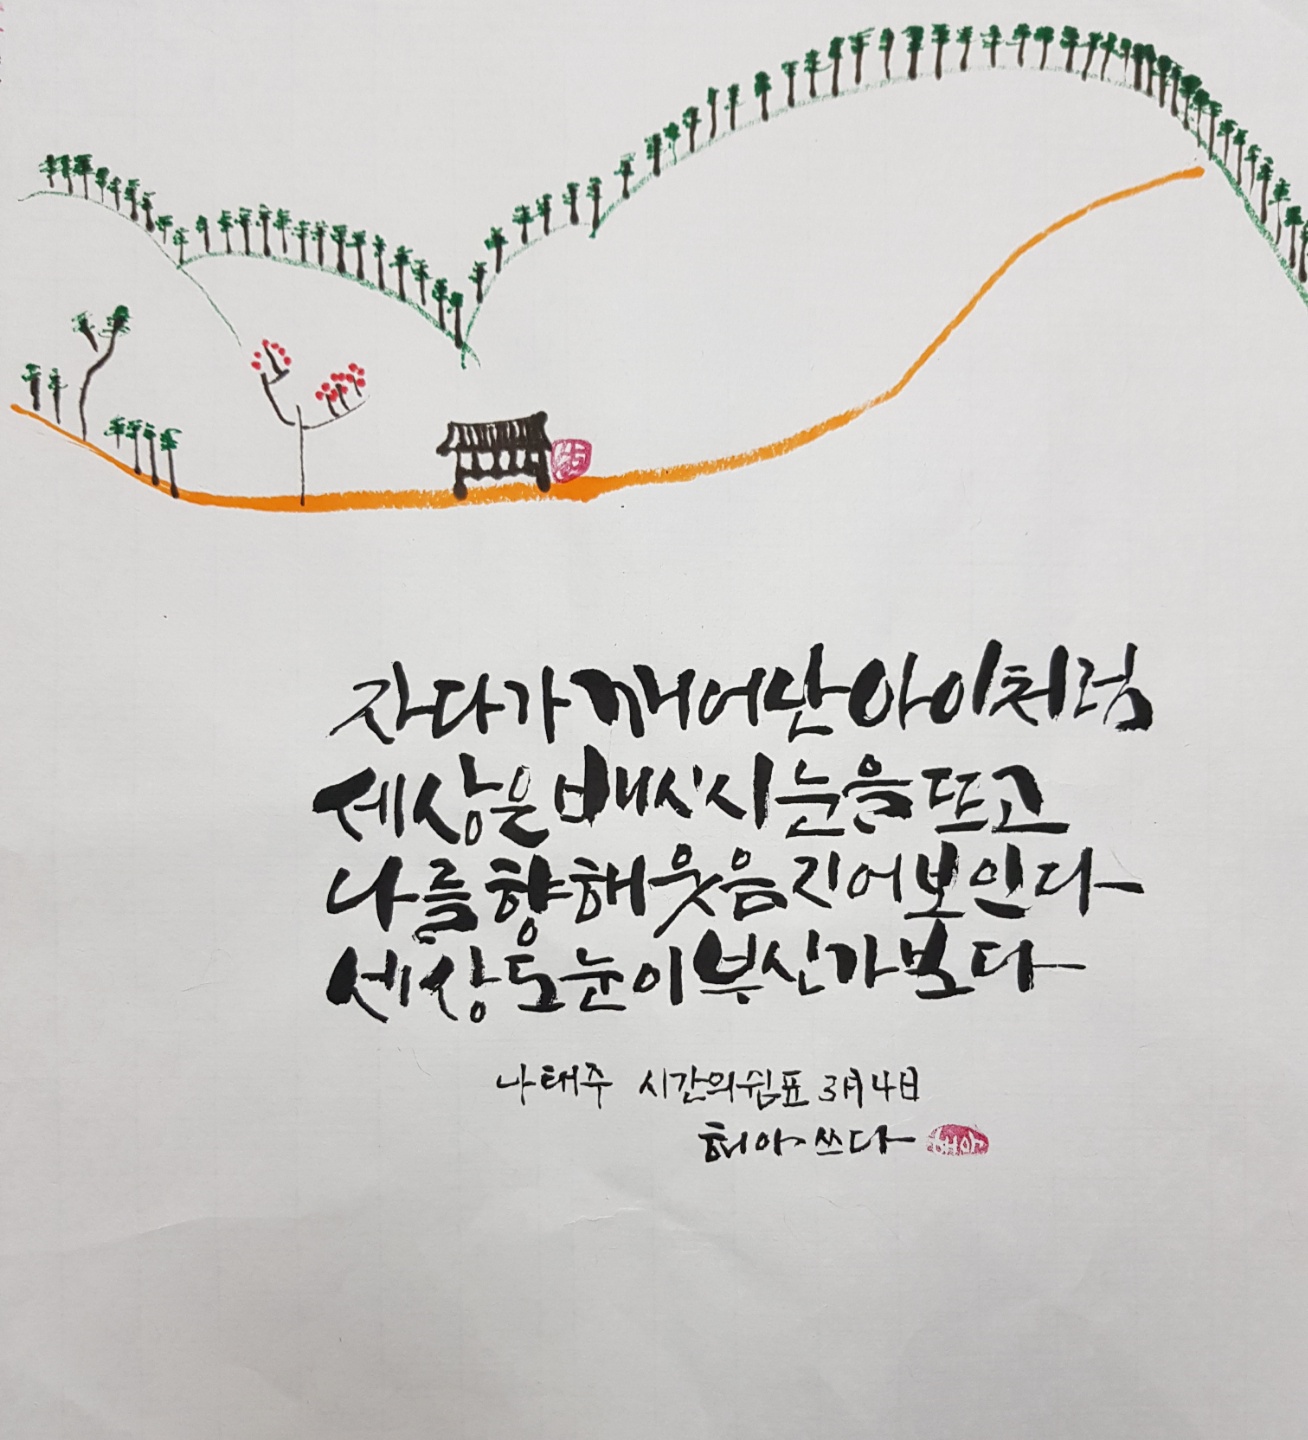 자다가 깨어난 아이처럼
세상은 배시시 눈을 뜨고
나를 향해 웃음 지어 보인다
세상도 눈이 부신가 보다
나태주 시간의 쉼표 3月 4日
혜아 쓰다 혜아